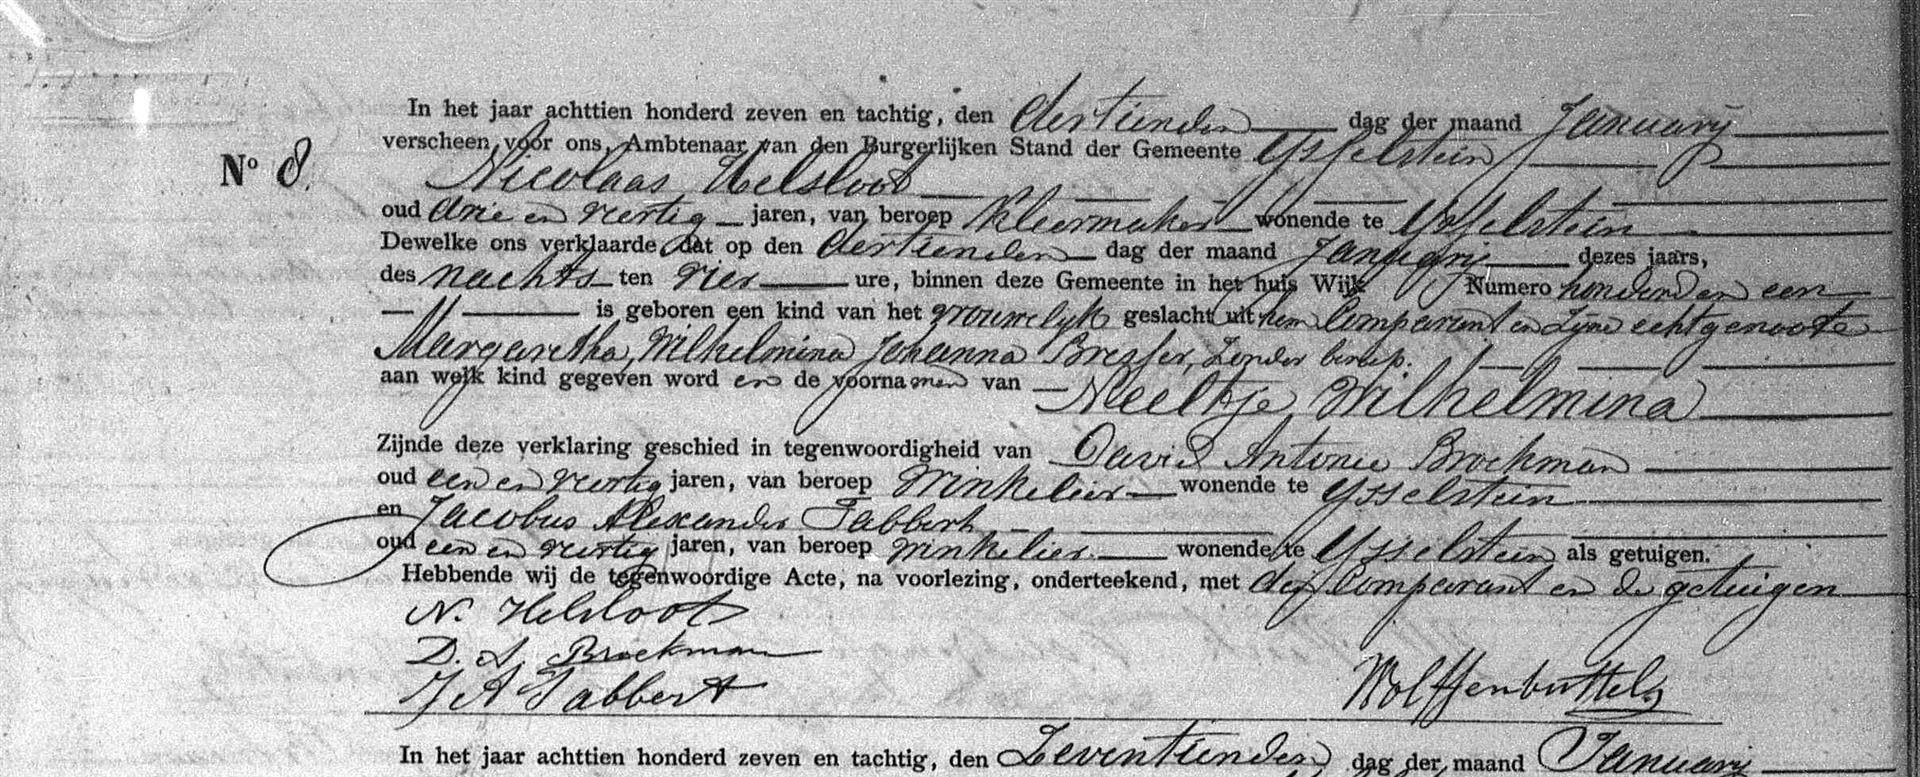 In het jaar achttien honderd zeven en tachtig, den dertienden dag der maand Januarij
verscheen voor ons, Ambtenaar van den Burgerlijken Stand der Gemeente IJsselstein
No 8.
Nicolaas Helsloot
oud drie en veertig jaren, van beroep kleermaker wonende te IJsselstein
Dewelke ons verklaarde dat op den dertienden dag der maand Januarij dezes jaars,
des nachts ten vier ure, binnen deze Gemeente in het huis Wijk Numero honderd en een
is geboren een kind van het vrouwelijk geslacht uit hem Comparant en zijne echtgenoote
Margaretha Wilhelmina Johanna Bresser, zonder beroep.
aan welk kind gegeven word en de voornamen van Neeltje Wilhelmina
Zijnde deze verklaring geschied in tegenwoordigheid van David Antonie Broekman
oud een en veertig jaren, van beroep winkelier wonende te IJsselstein
en Jacobus Alexander Tabbert
oud een en veertig jaren, van beroep winkelier wonende te IJsselstein als getuigen.
Hebbende wij de tegenwoordige Acte, na voorlezing, onderteekend, met den Comparant en de getuigen
N. Helsloot
D. A. Broekman
J A Tabbert
Wolffenbuttel
In het jaar achttien honderd zeven en tachtig, den Zeventienden dag der maand Januarij